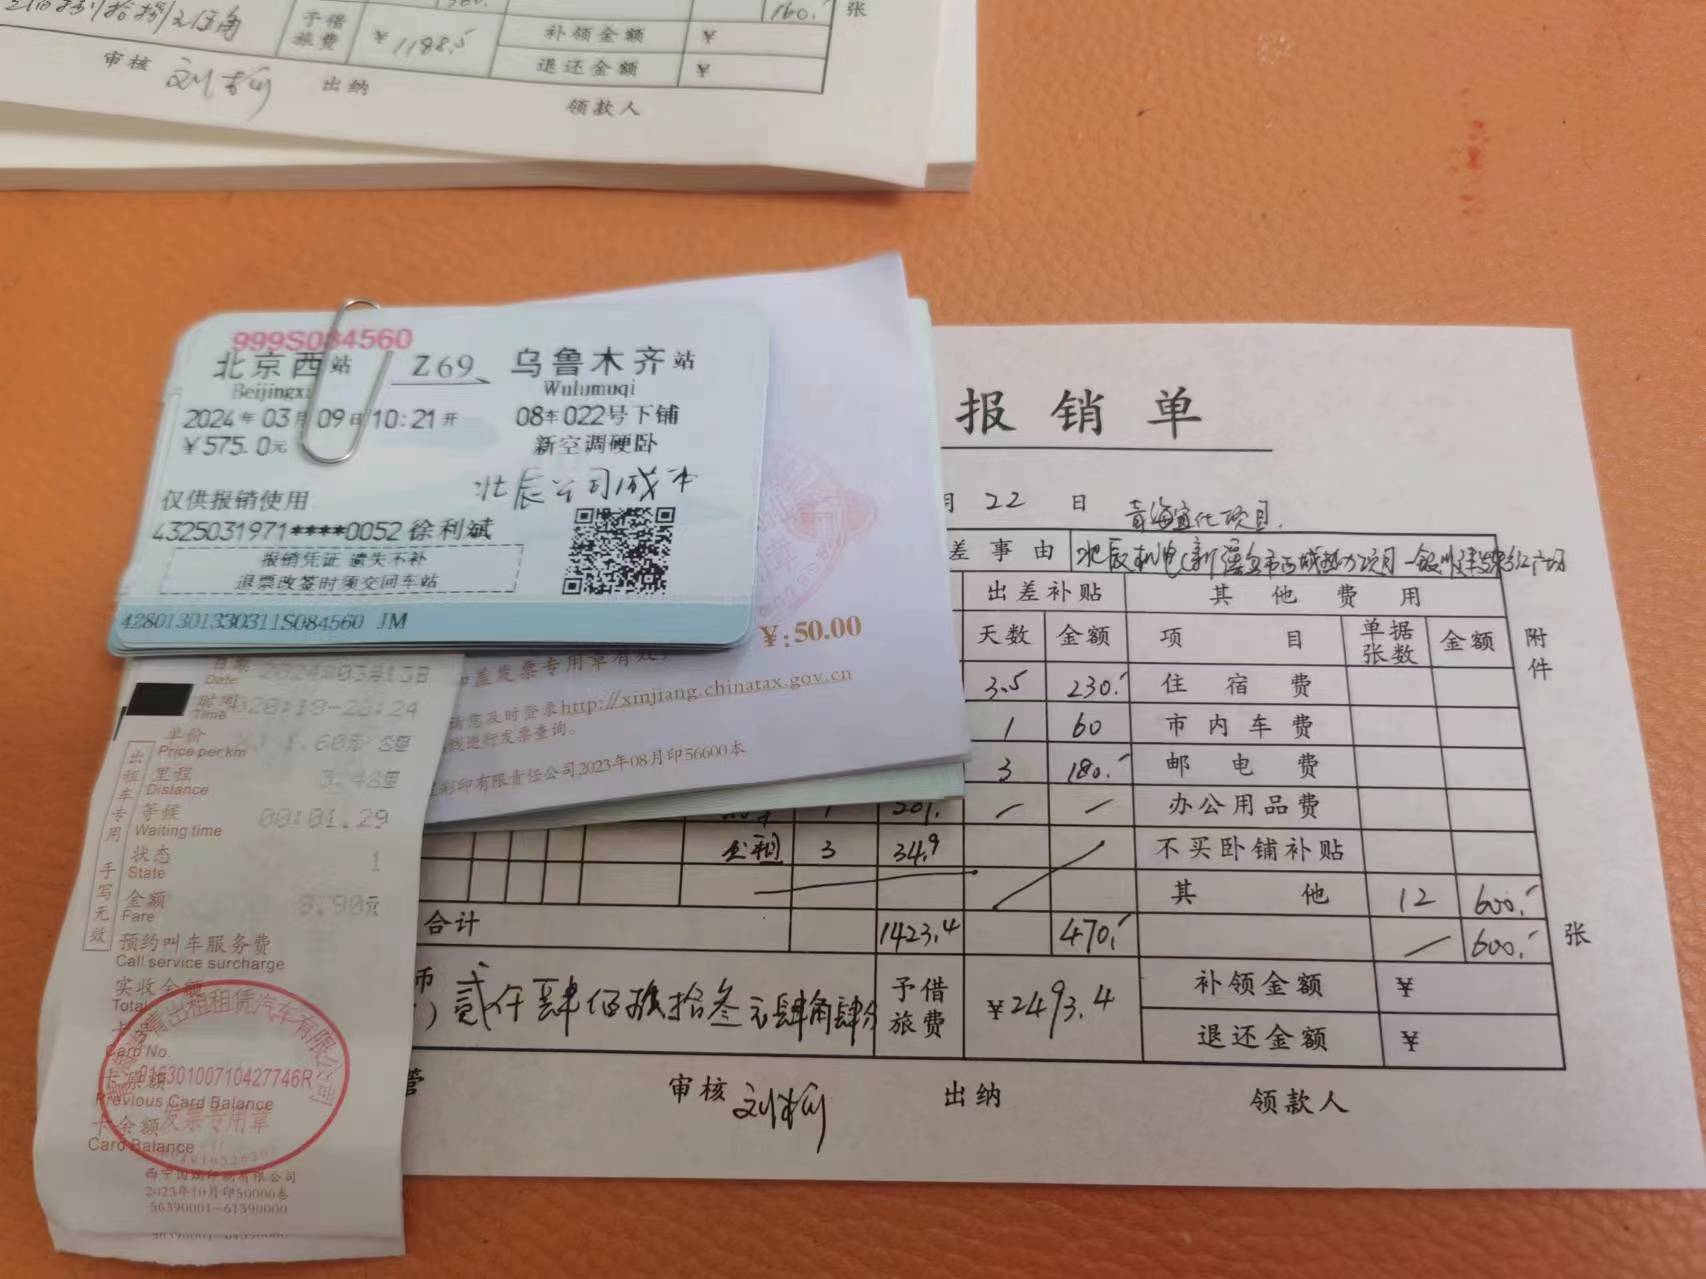 予借旅费 ¥1198.5 补领金额 ¥
160.- 张
退还金额 ¥
审核 出纳 领款人
999S084560
北京西站 Z69 乌鲁木齐站
Beijingxi Wulumuqi
2024年03月09日10:21开 08车022号下铺
¥575.0元 新空调硬卧
北辰公司成本
仅供报销使用
4325031971****0052 徐利斌
报销凭证 遗失不补
退票改签时须交回车站
4280130133031​1S084560 JM
¥:50.00
盖发票专用章有效
您及时登录http://xinjiang.chinatax.gov.cn
进行发票查询。
彩印有限责任公司2023年08月印56600本
日期 2024年03月13日
Date
时间 20:19-20:24
Time
单价 1.60元/公里
Price per km
里程 3.4公里
Distance
等候 00:01.29
Waiting time
状态 1
State
金额 8.90元
Fare
出租车专用 手写无效
预约叫车服务费
Call service surcharge
实收金额
Total
卡号
Card No.
卡原额
Previous Card Balance
卡余额
Card Balance
出租租赁汽车有限公司
91630100710427746R
发票专用章
2023年10月印50000卷
56390001-61390000
报销单
月 22 日 青海宜化项目
差事由
出差补贴 其他费用
天数 金额 项目 单据张数 金额 附件
3.5 230.- 住宿费
1 60 市内车费
3 180.- 邮电费
1 201. — — 办公用品费
3 34.9 不买卧铺补贴
其他 12 600.-
合计 1423.4 470.- — 600.- 张
贰仟肆佰玖拾叁元肆角肆分 予借旅费 ¥2493.4 补领金额 ¥
退还金额 ¥
管 审核 出纳 领款人